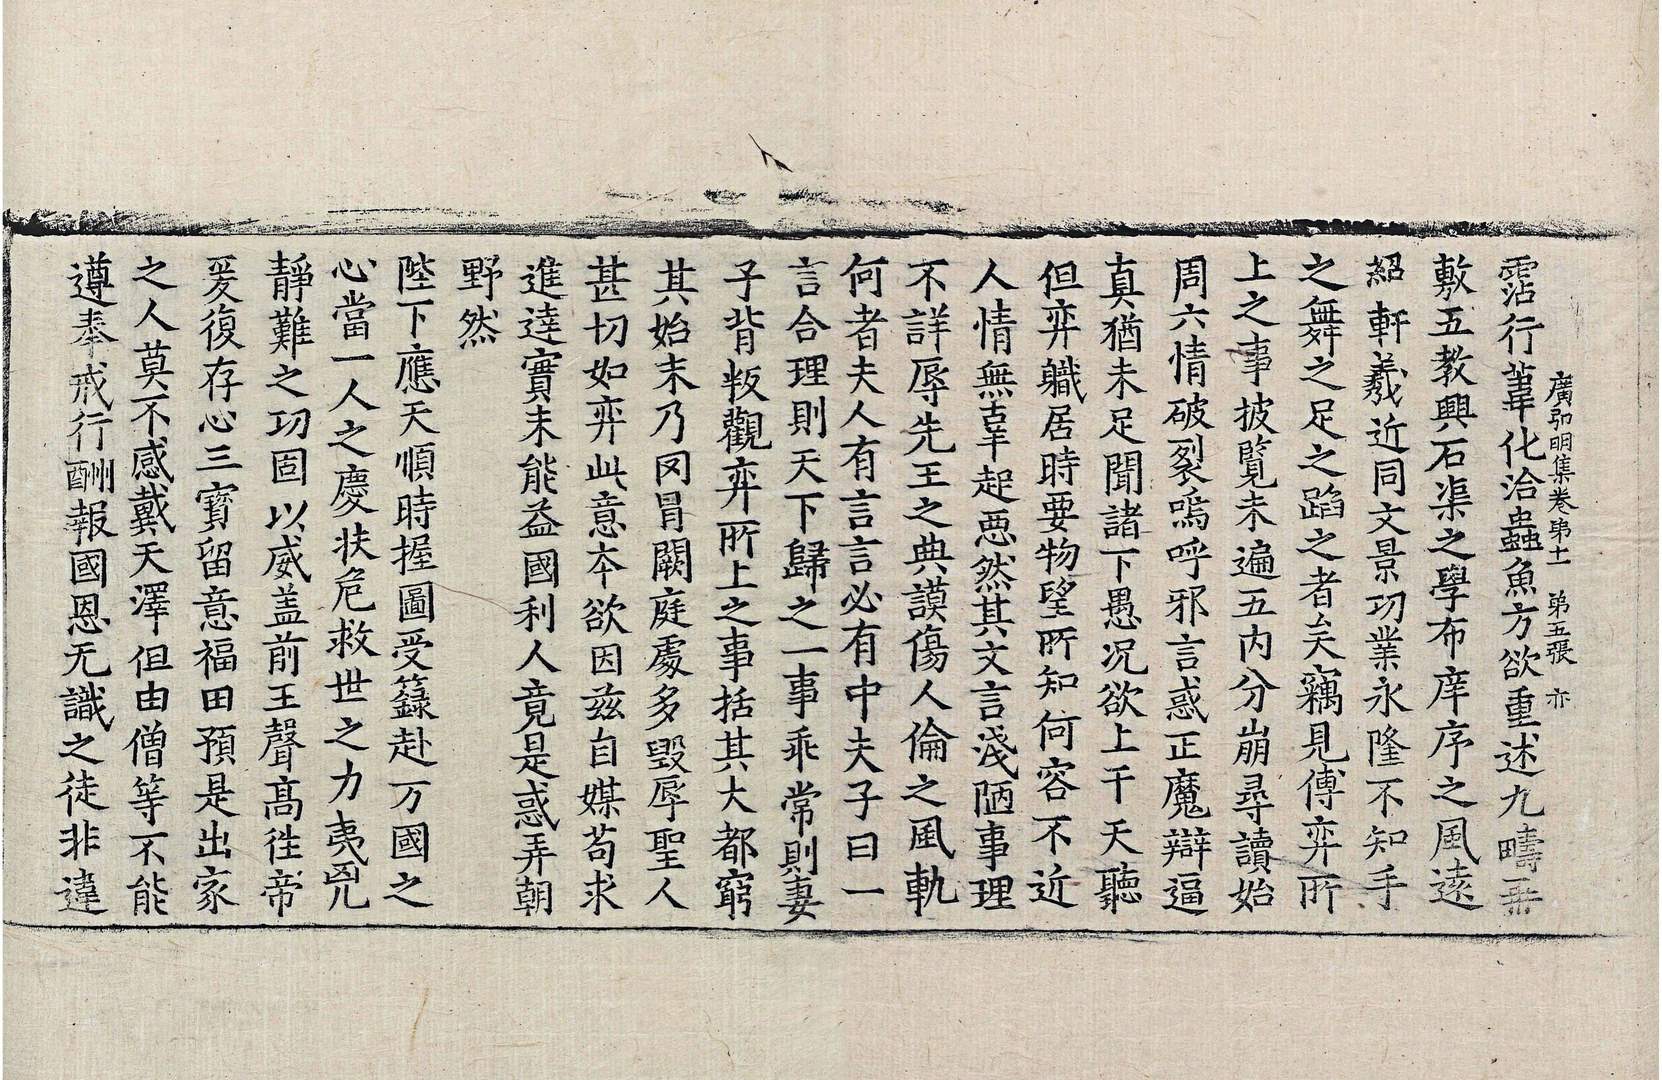 廣弘明集卷第十一　第五張　亦
霑行葦化洽蟲魚方欲重述九疇再
敷五教興石渠之學布庠序之風遠
紹軒羲近同文景功業永隆不知手
之舞之足之蹈之者矣竊見傅弈所
上之事披覽未遍五內分崩尋讀始
周六情破裂嗚呼邪言惑正魔辯逼
真猶未足聞諸下愚况欲上干天聽
但弈職居時要物望所知何容不近
人情無辜起惡然其文言淺陋事理
不詳辱先王之典謨傷人倫之風軌
何者夫人有言言必有中夫子曰一
言合理則天下歸之一事乖常則妻
子背叛觀弈所上之事括其大都窮
其始末乃罔冒闕庭處多毀辱聖人
甚切如弈此意本欲因兹自媒苟求
進達實未能益國利人竟是惑弄朝
野然
陛下應天順時握圖受籙赴万國之
心當一人之慶扶危救世之力夷兇
靜難之功固以威盖前王聲高徃帝
爰復存心三寳留意福田預是出家
之人莫不感戴天澤但由僧等不能
遵奉戒行酬報國恩无識之徒非違